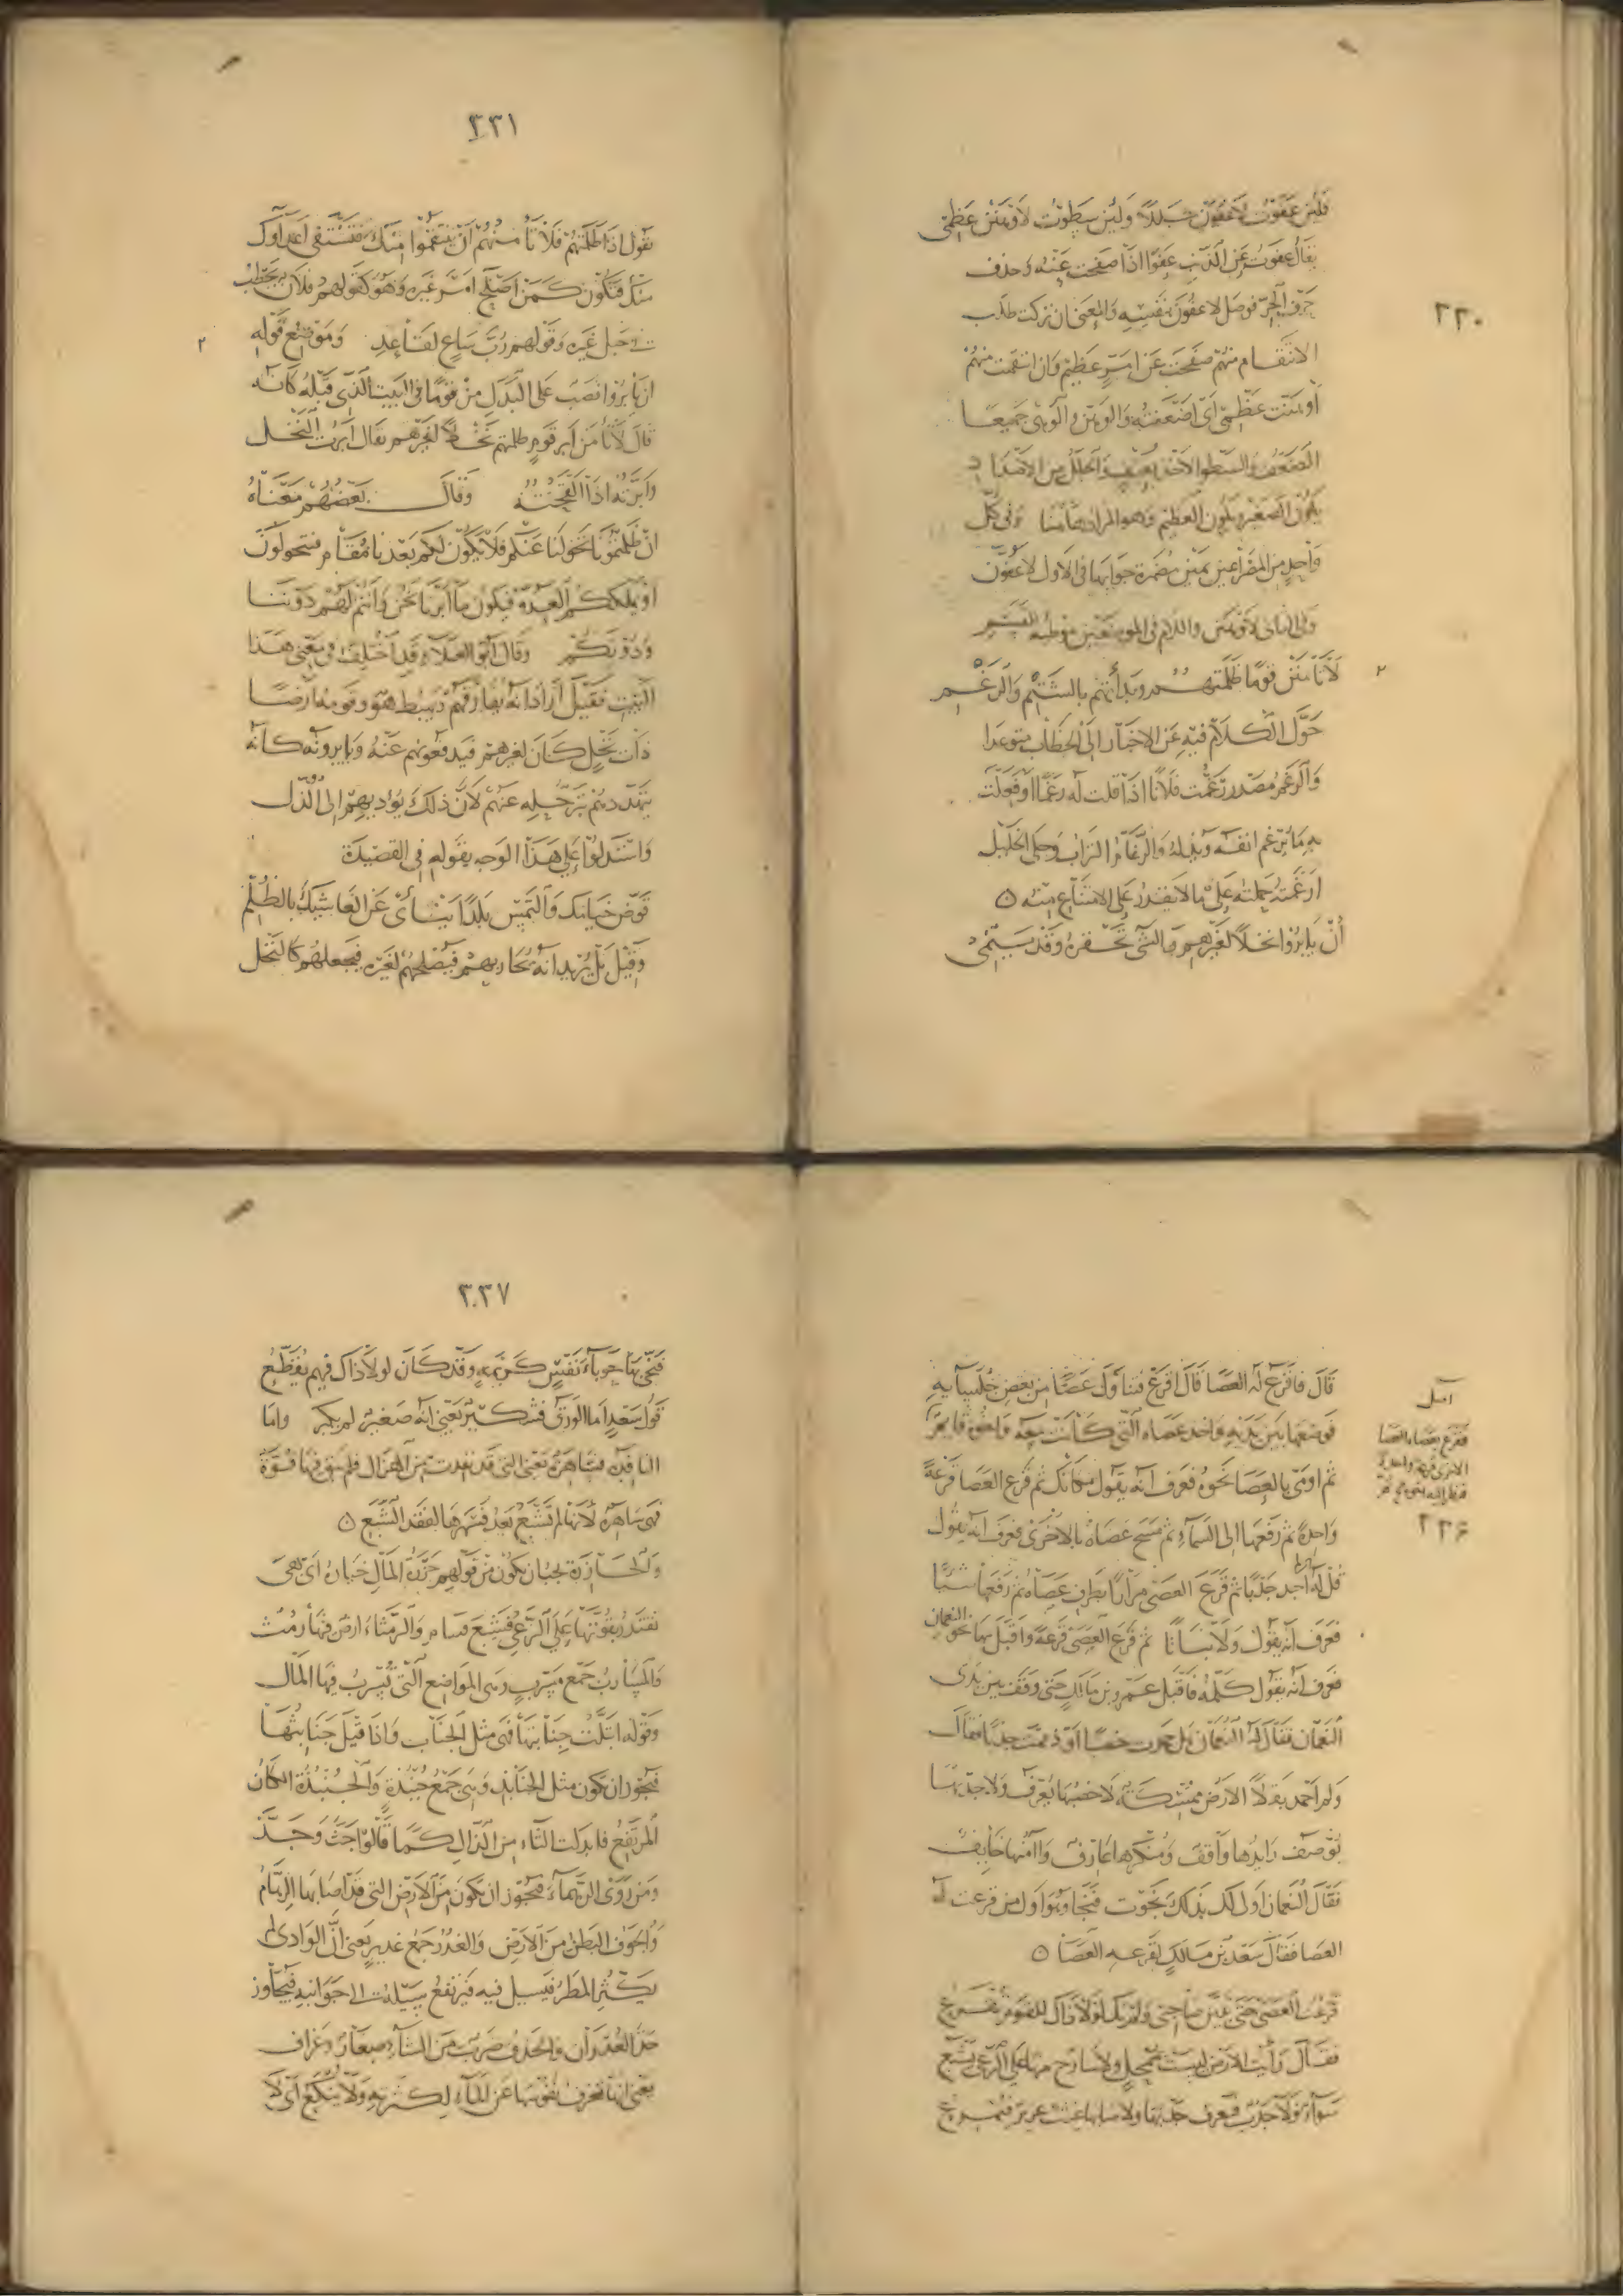 ٣٣٠
فلئن عفوت لأعفون جللا ولئن سطوت لأوهنن عظمي
يقال عفوت عن الذنب عفوا اذا صفحت عنه وحذف
حرف الجر فوصل لاعفون بنفسه والمعنى ان تركت طلب
الانتقام منهم صفحت عن امر عظيم وان انتقمت منهم
أوهنت عظمي اى اضعفته والوهن والوهى جميعا
الضعف والسطو الاخذ بعنف والجلل من الاضداد
يكون الصغير ويكون العظيم وهو المراد هاهنا وفى كل
واحد من المصراعين يمين مضمرة جوابها فى الاول لاعفون
وفى الثانى لاوهنن واللام فى الموضعين موطئة للقسم
٢
لا تأمنن قوما ظلمتهم وبدأتهم بالشتم والرغم
حول الكلام فيه عن الاخبار الى الخطاب متوعدا
والرغم مصدر رغمت فلانا اذا قلت له رغما او فعلت
به ما يرغم انفه ويذله والرغام التراب وحكى الخليل
ارغمته حملته على ما لا يقدر على الامتناع منه
أن يأبروا نخلا لغيرهم والشئ تحقره وقد ينمى
٣٣١
يقول اذا ظلمتهم فلا تأمنهم ان ينتقموا منك فتشتفى اعداؤك
منك فتكون كمن اصلح امر غيره وهو كقولهم فلان يحطب
فى حبل غيره وقولهم رب ساع لقاعد وموضع قوله
٢
ان يأبروا نصب على البدل من قوما فى البيت الذى قبله كانه
قال لا تأمن أبر قوم ظلمتهم نخلا لغيرهم يقال أبرت النخل
وأبرته اذا القحته وقال بعضهم معناه
ان ظلمتمونا تحولنا عنكم فلا يكون لكم بعدنا مقام فتتحولون
او يملككم العدو فيكون ما أبرنا نحن وانتم لهم دوننا
ودونكم وقال ابو العلاء قد اختلف فى معنى هذا
البيت فقيل اراد انه يفارقهم فيهبط هو وقومه ارضا
ذات نخل كان لغيرهم فيدفعونهم عنه ويابرونه كانه
يتهددهم بترحله عنهم لان ذلك يؤديهم الى الذل
واستدلوا على هذا الوجه بقوله فى القصيدة
قوض خيامك والتمس بلدا ينأى عن الغاشيك بالظلم
وقيل بل يريد انه يحاربهم فيصلحهم لغيره فيجعلهم كالنخل
قال فاقرع له العصا قال اقرع فتناول عصا من بعض جلسائه
فوضعها بين يديه واخذ عصاه التى كانت معه واخوه قائم
ثم اومى بالعصا نحوه فعرف انه يقول مكانك ثم قرع العصا قرعة
واحدة ثم رفعها الى السماء ثم مسح عصاه بالاخرى فعرف انه يقول
قل له لم اجد جدبا ثم قرع العصى مرارا بطرف عصاه ثم رفعها شيئا
فعرف انه يقول ولا نباتا ثم قرع العصى قرعة واقبل بها نحو النعمان
فعرف انه يقول كلمه فاقبل عمرو بن مالك حتى وقف بين يدى
النعمان فقال له النعمان هل حمدت خصبا او ذممت جدبا فقال
ولم احمد بقلا الارض مشكلة لا خصبها يعرف ولا جدبها
يوصف رائدها واقف ومنكرها عارف وآمنها خائف
فقال النعمان اولى لك بذلك نجوت فنجا وهو اول من قرعت له
العصا فقال سعد بن مالك لقرعه العصا
قرعت العصى حتى تبين صاحبى ولم تك لولا ذاك للقوم تقرع
فقال رأيت الارض ليست بممحل ولا سارح منها على الرعى يشبع
سواء فلا جدب فيعرف جدبها ولا صابها غيث غزير فتمرع
اصل
فقرع بعصاه العصا
الاخرى قرعة واحدة
فنظر اليه
٣٣٦
٣٣٧
فنجى بها حوباء نفس كريمة وقد كان لولا ذاك فيهم يقطع
قول سعد اما الورق فشكير يعنى انه صغير لم يكبر واما
النافدة فساهرة يعنى التى قد نفدت من الهزال فلم يبق فيها قوة
فهى ساهرة لانها لم تشبع بعد فتسهرها لفقد الشبع
والحازرة يجوز ان يكون من قولهم حزرة المال خياره اى هى
تقتدر بقوتها على الرعى فتشبع فتنام والرمثاء ارض فيها رمث
والمسارب جمع مسرب وهى المواضع التى تسرب فيها المال
وقوله ابتلت جنابتها فهى مثل الجناب واذا قيل جنابثها
فيجوز ان تكون مثل الجنابذ وهى جمع جنبذة والجنبذة المكان
المرتفع فابدلت الثاء من الذال كما قالوا جث وجذ
ومن روى الرهماء فيجوز ان تكون من الارض التى قد اصابها الرهام
والجوف البطن من الارض والغدر جمع غدير يعنى ان الوادى
يكثر المطر فيسيل فيه فيرتفع سيله الى جوانبه فيجاوز
حد الغدران والحذف ضرب من الشاء صغار وعزاف
يعنى انها تعزف نفوسها عن الماء لكثرته ولا ينكع اى لا